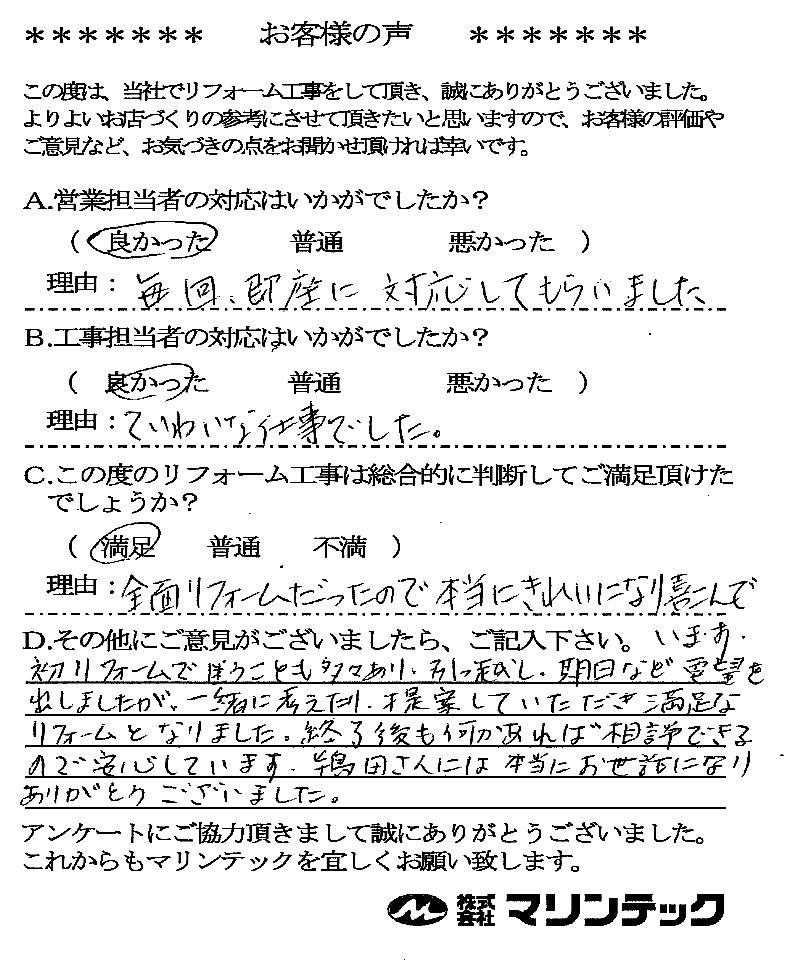 ＊＊＊＊＊＊＊　お客様の声　＊＊＊＊＊＊＊
この度は、当社でリフォーム工事をして頂き、誠にありがとうございました。
よりよいお店づくりの参考にさせて頂きたいと思いますので、お客様の評価や
ご意見など、お気づきの点をお聞かせ頂ければ幸いです。
A.営業担当者の対応はいかがでしたか？
（ 良かった　普通　悪かった ）
理由：毎回、即座に対応してもらいました
B.工事担当者の対応はいかがでしたか？
（ 良かった　普通　悪かった ）
理由：ていねいな仕事でした。
C.この度のリフォーム工事は総合的に判断してご満足頂けた
でしょうか？
（ 満足　普通　不満 ）
理由：全面リフォームだったので本当にきれいになり喜こんで
D.その他にご意見がございましたら、ご記入下さい。います.
初リフォームでまようことも多々あり、引っ越し、期日など要望を
出しましたが、一緒に考えたり、提案していただき満足な
リフォームとなりました。終了後も何かあれば相談できる
ので安心しています.さんには本当にお世話になり
ありがとうございました。
アンケートにご協力頂きまして誠にありがとうございました。
これからもマリンテックを宜しくお願い致します。
株式会社 マリンテック